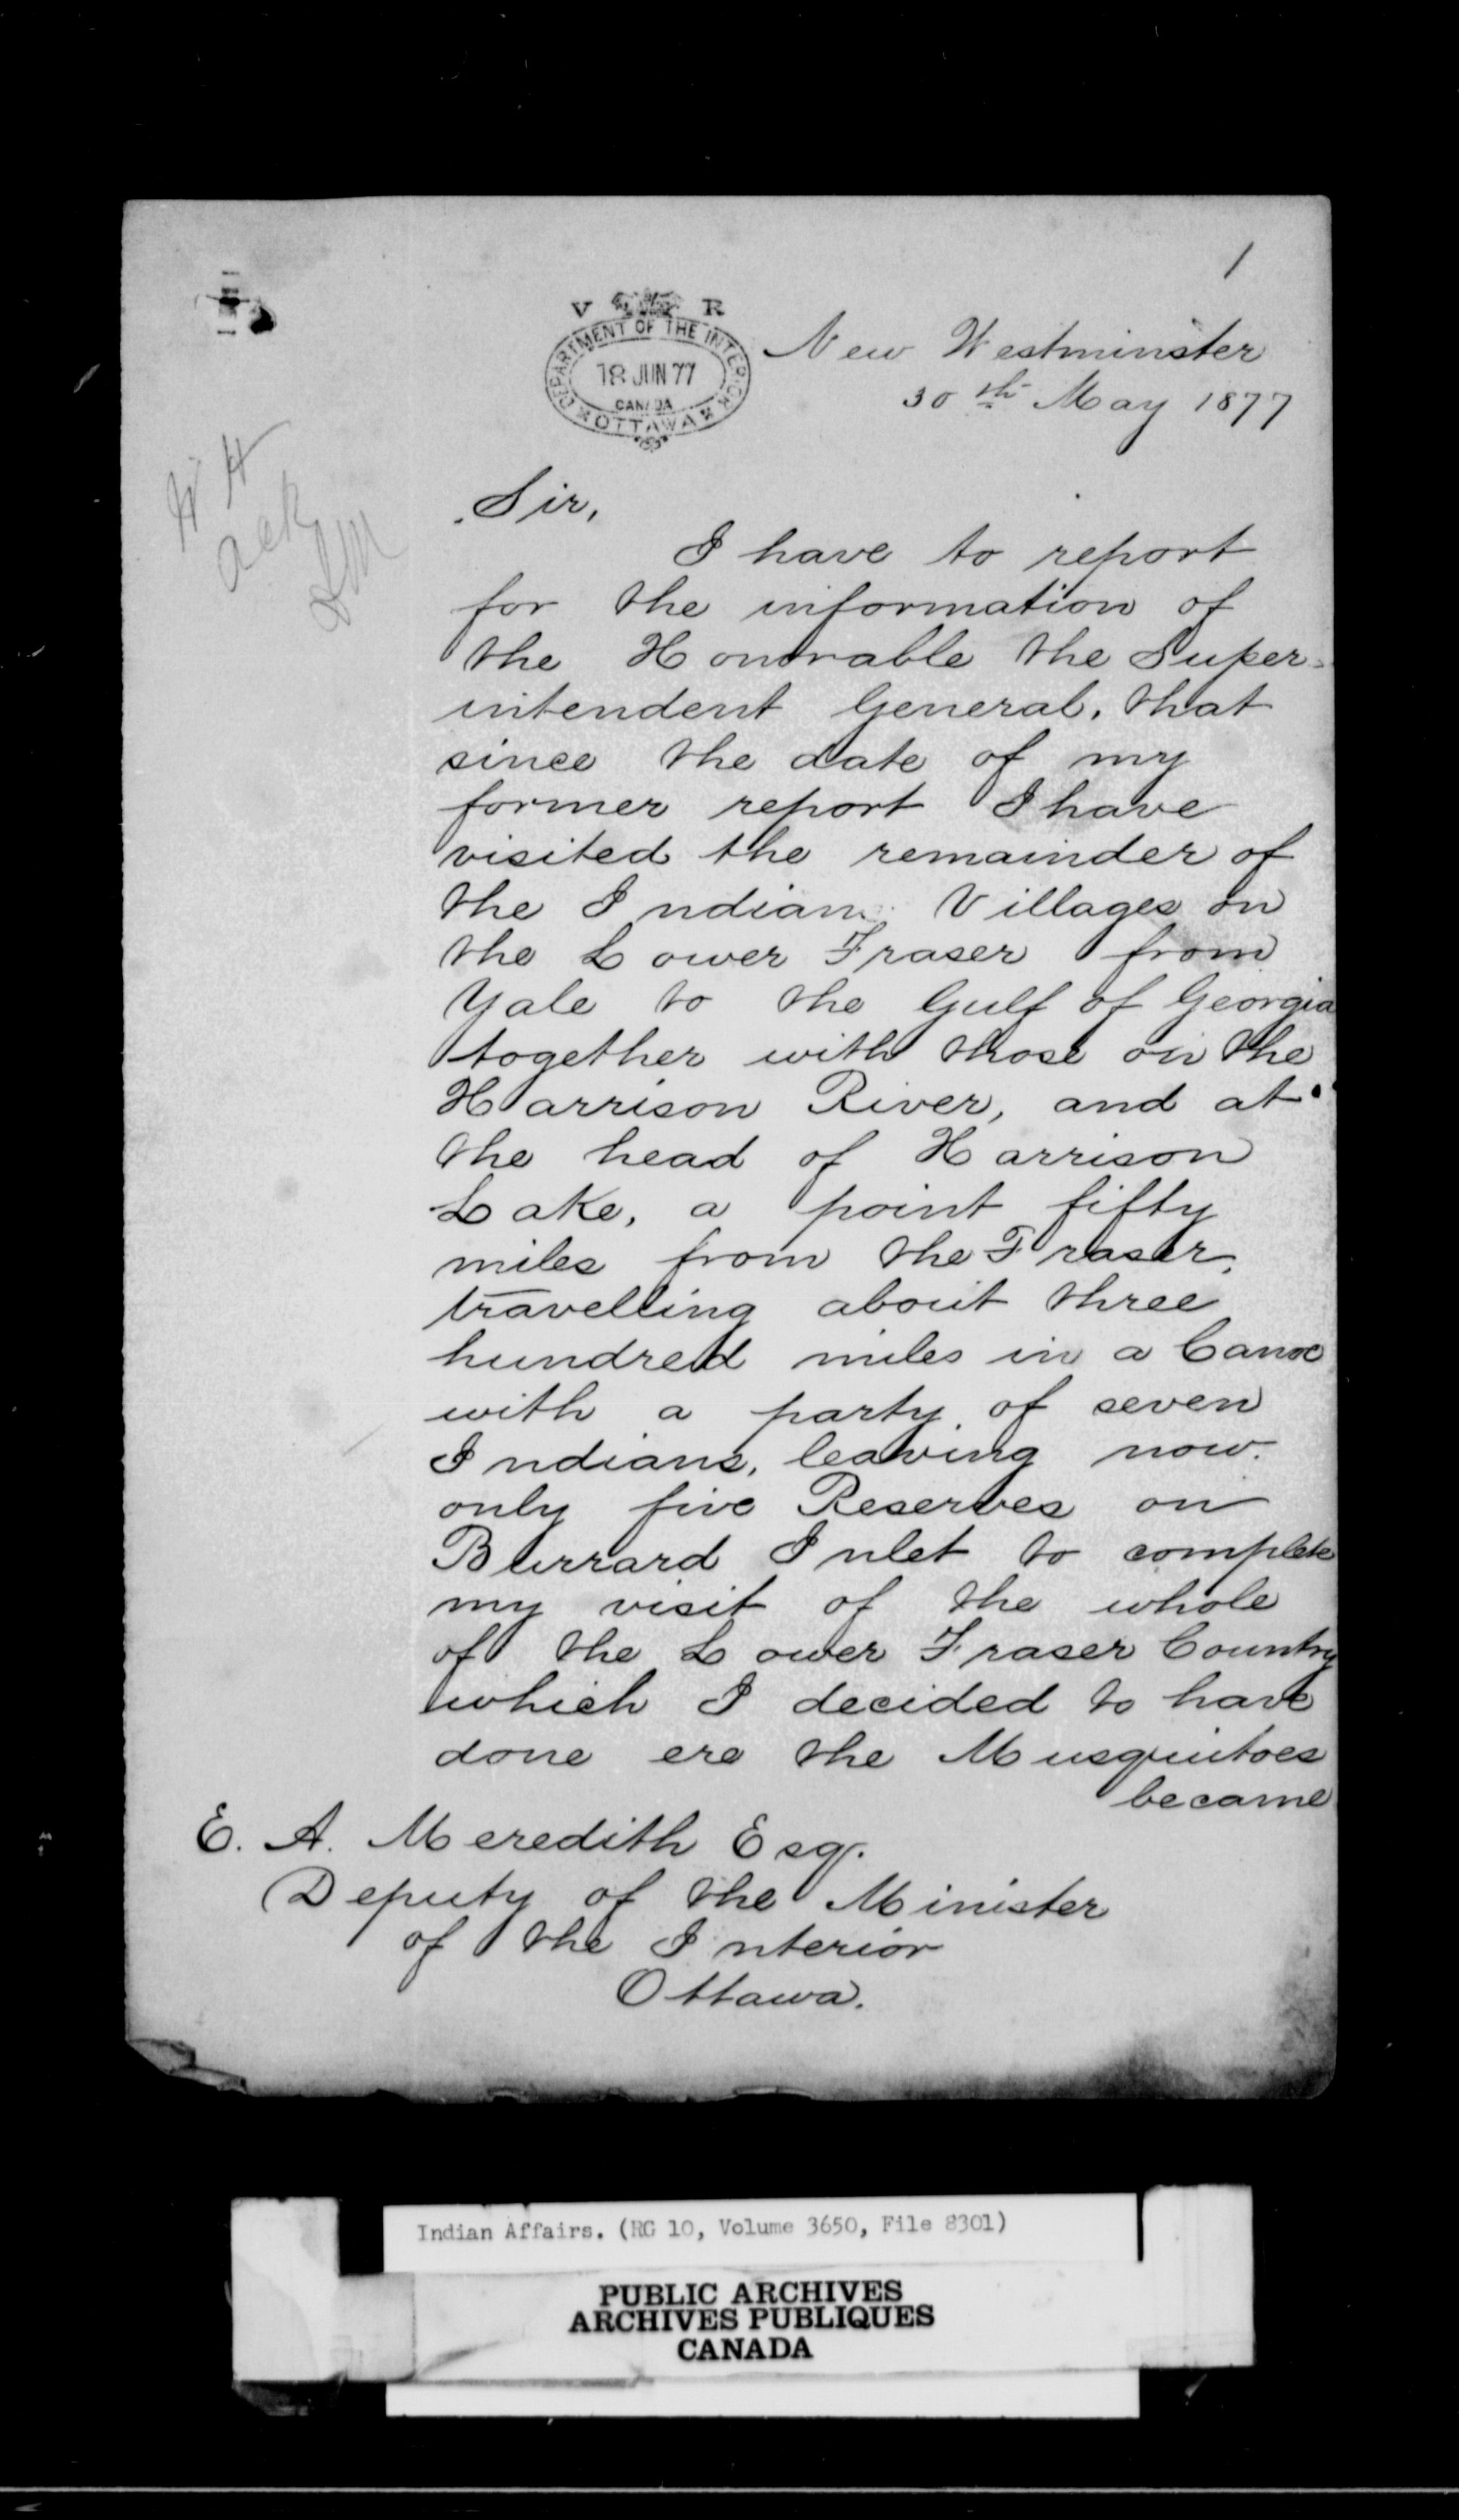 1
V R
DEPARTMENT OF THE INTERIOR
18 JUN 77
CANADA
OTTAWA
New Westminster
30th May 1877
Ack
Sir,
I have to report
for the information of
the Honorable the Super-
intendent General, that
since the date of my
former report I have
visited the remainder of
the Indian Villages on
the Lower Fraser from
Yale to the Gulf of Georgia
together with those on the
Harrison River, and at
the head of Harrison
Lake, a point fifty
miles from the Fraser,
travelling about three
hundred miles in a Canoe
with a party of seven
Indians, leaving now
only five Reserves on
Burrard Inlet to complete
my visit of the whole
of the Lower Fraser Country
which I decided to have
done ere the Musquitoes
became
E. A. Meredith Esq.
Deputy of the Minister
of the Interior
Ottawa.
Indian Affairs. (RG 10, Volume 3650, File 8301)
PUBLIC ARCHIVES
ARCHIVES PUBLIQUES
CANADA